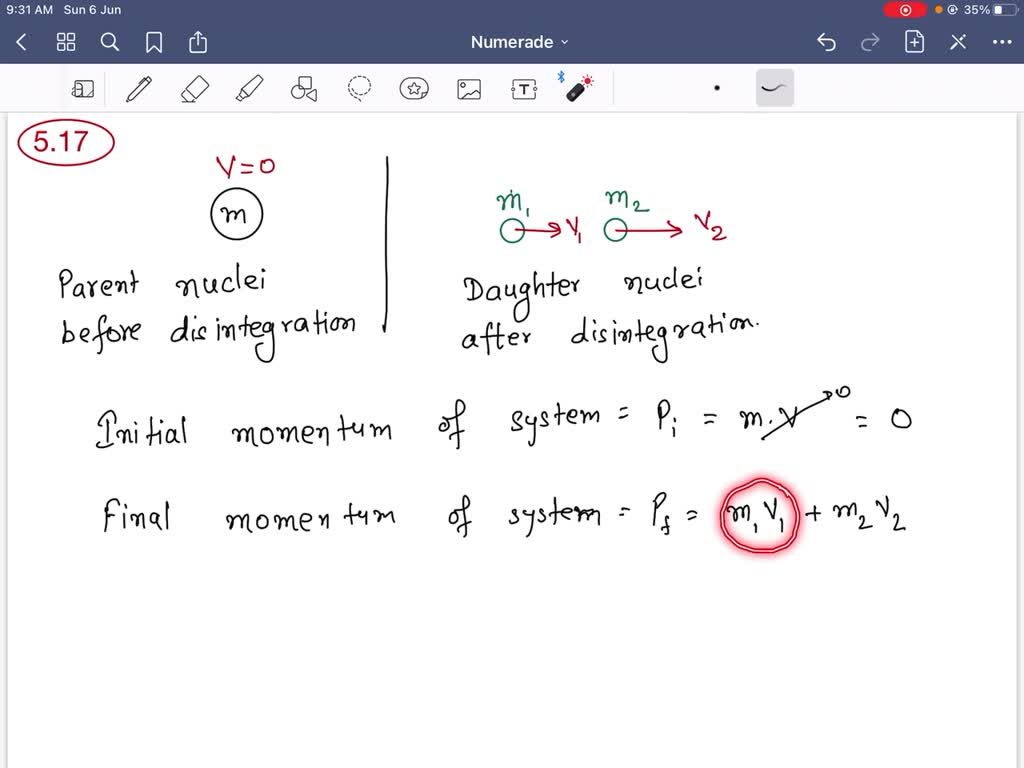 9:31 AM Sun 6 Jun
35%
Numerade
T
5.17
V=0
m
m₁
V₁
m₂
V₂
Parent nuclei
before disintegration
Daughter nuclei
after disintegration.
Initial momentum of system = Pᵢ = m.V → 0 = 0
Final momentum of system = P_f = m₁V₁ + m₂V₂